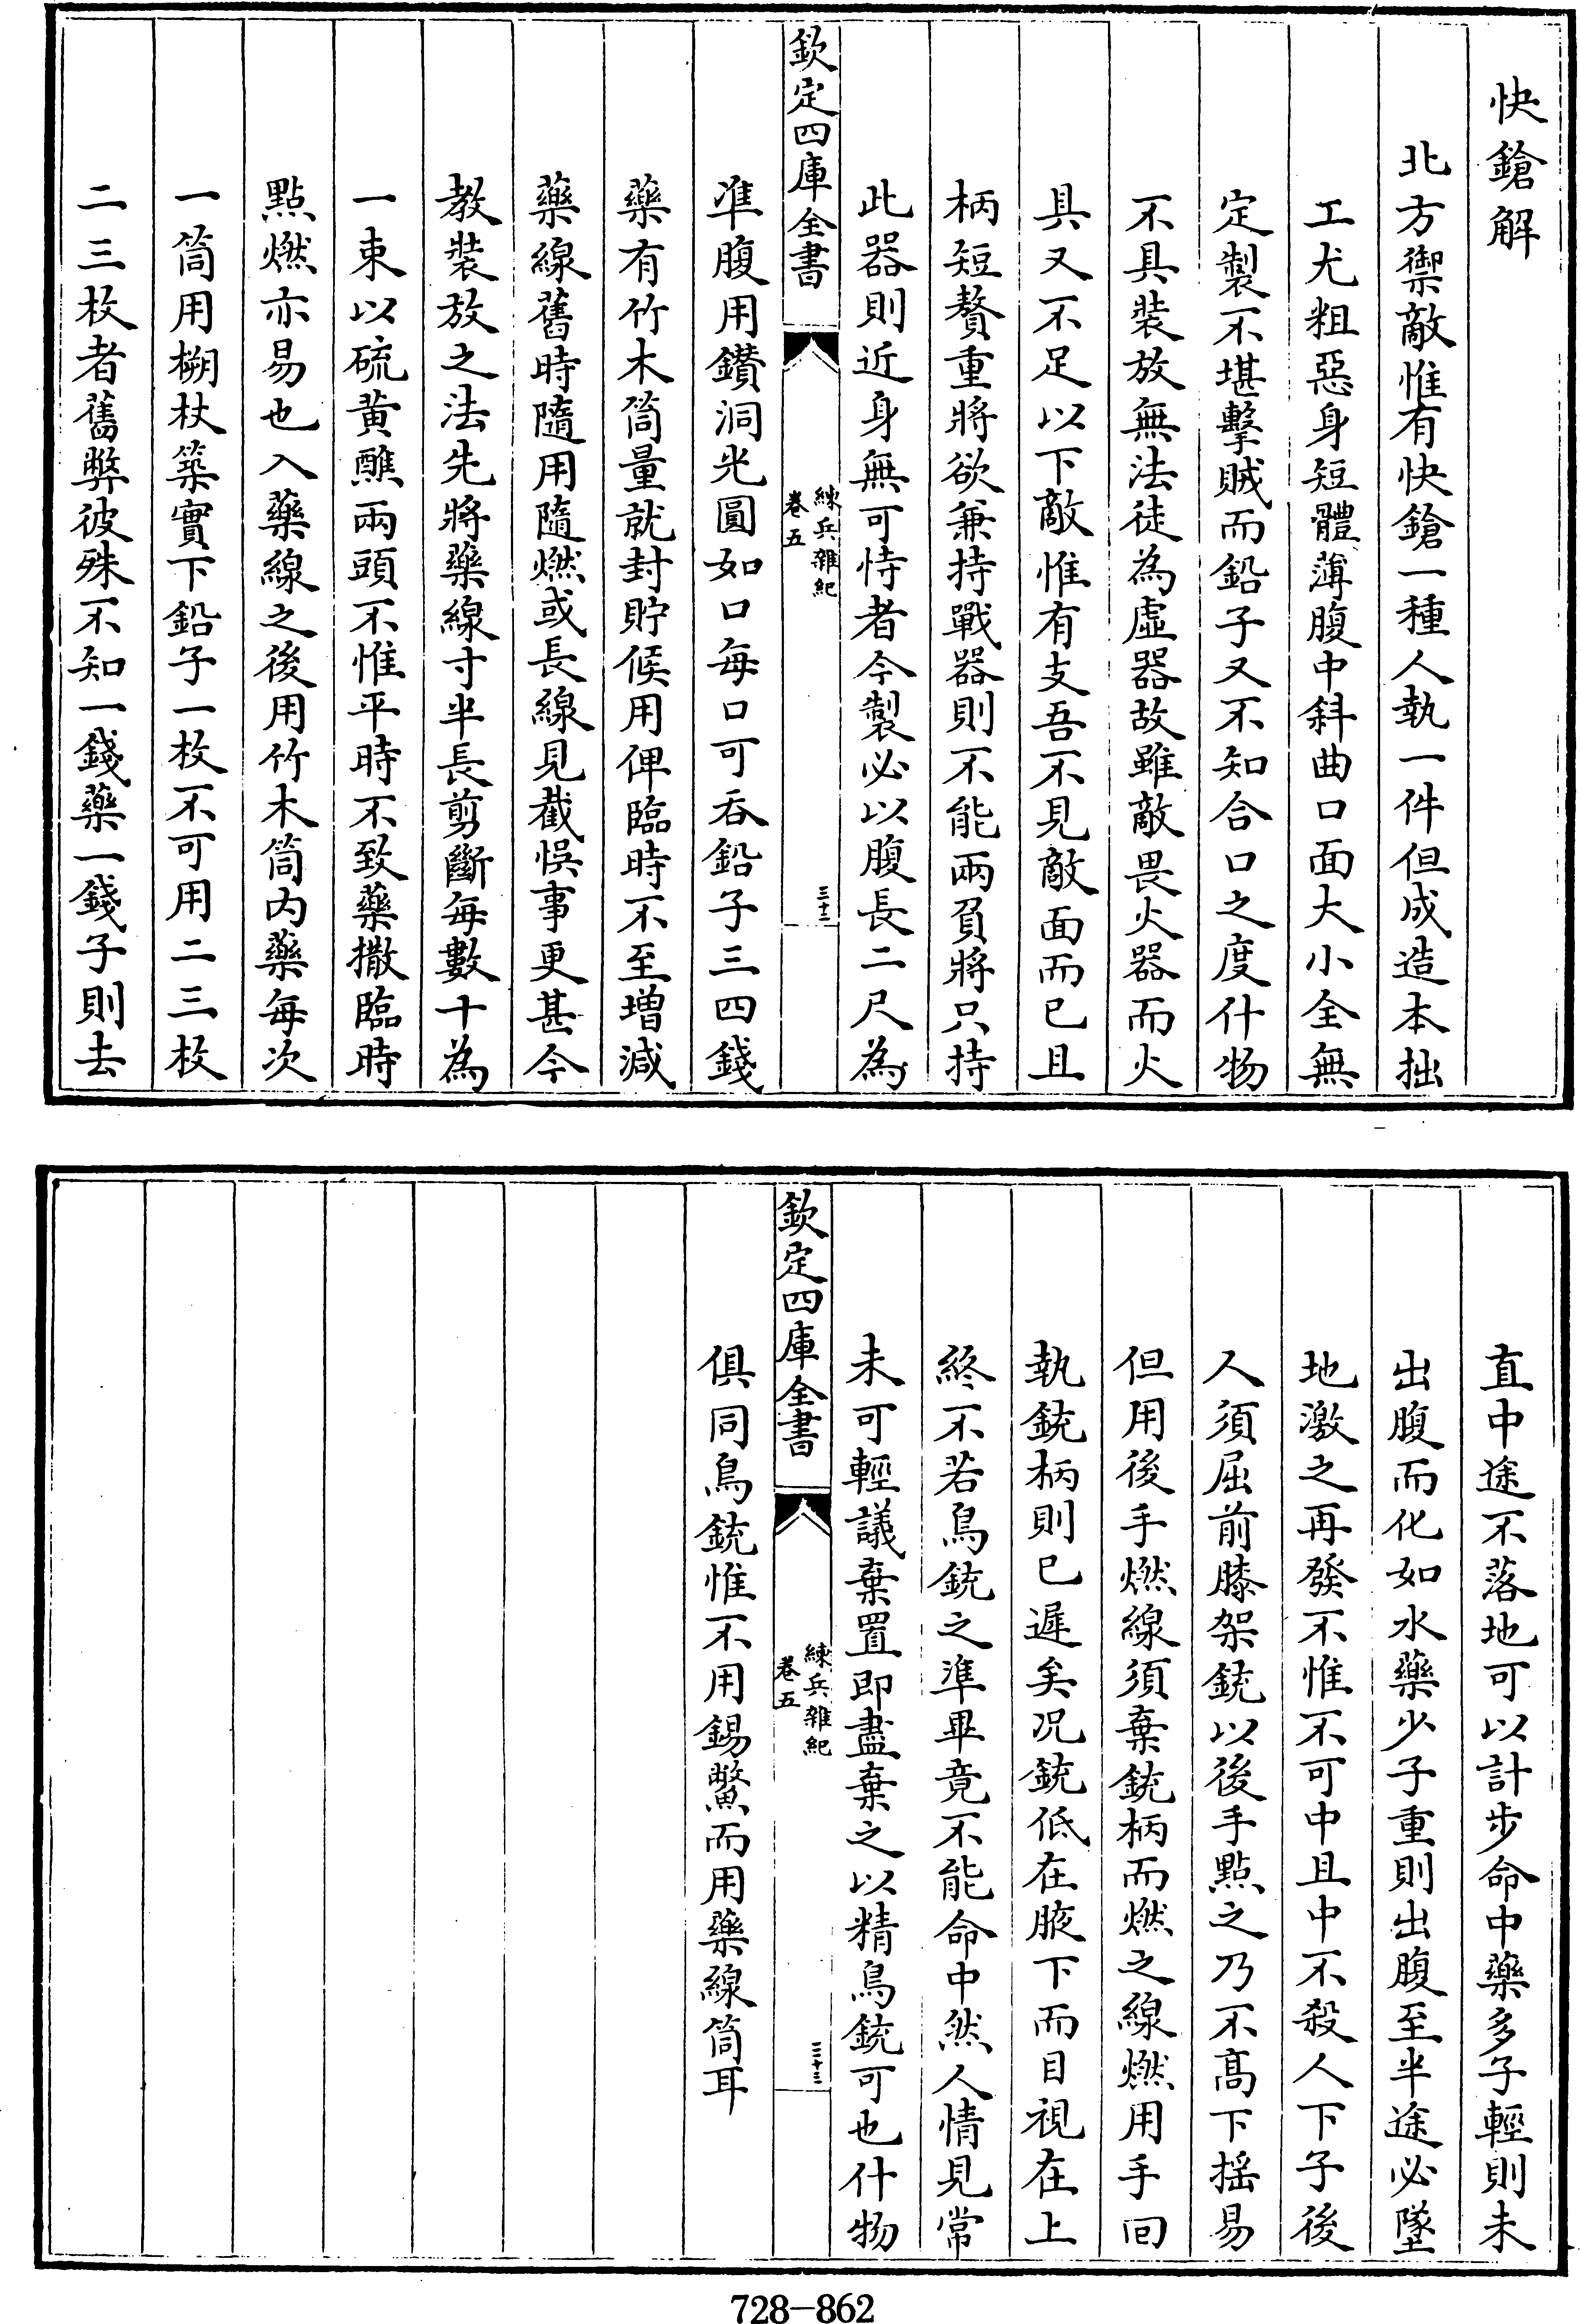 快鎗解
北方禦敵惟有快鎗一種人執一件但成造本拙
工尤粗惡身短體薄腹中斜曲口面大小全無
定製不堪擊賊而鉛子又不知合口之度什物
不具裝放無法徒為虛器故雖敵畏火器而火
具又不足以下敵惟有支吾不見敵面而已且
柄短贅重將欲兼持戰器則不能兩負將只持
此器則近身無可恃者今製必以腹長二尺為
欽定四庫全書
練兵雜紀
卷五
三十二
準腹用鑽洞光圓如口每口可吞鉛子三四錢
藥有竹木筒量就封貯候用俾臨時不至增減
藥線舊時隨用隨燃或長線見截悞事更甚今
教裝放之法先將藥線寸半長剪斷每數十為
一束以硫黃醮兩頭不惟平時不致藥撒臨時
點燃亦易也入藥線之後用竹木筒內藥每次
一筒用槊杖築實下鉛子一枚不可用二三枚
二三枚者舊弊彼殊不知一錢藥一錢子則去
直中途不落地可以計步命中藥多子輕則未
出腹而化如水藥少子重則出腹至半途必墜
地激之再發不惟不可中且中不殺人下子後
人須屈前膝架銃以後手點之乃不高下搖易
但用後手燃線須棄銃柄而燃之線燃用手回
執銃柄則已遲矣况銃低在腋下而目視在上
終不若鳥銃之準畢竟不能命中然人情見常
未可輕議棄置即盡棄之以精鳥銃可也什物
欽定四庫全書
練兵雜紀
卷五
三十三
俱同鳥銃惟不用錫鱉而用藥線筒耳
728-862